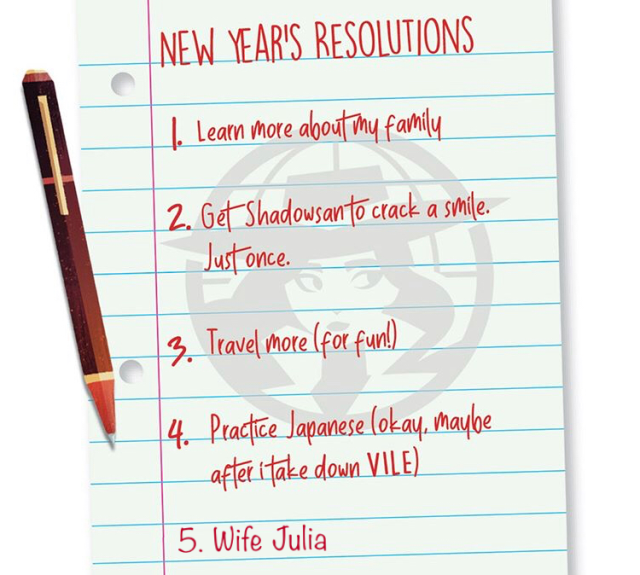 NEW YEAR'S RESOLUTIONS
1. Learn more about my family
2. Get Shadowsan to crack a smile.
Just once.
3. Travel more (for fun!)
4. Practice Japanese (okay, maybe
after i take down VILE)
5. Wife Julia